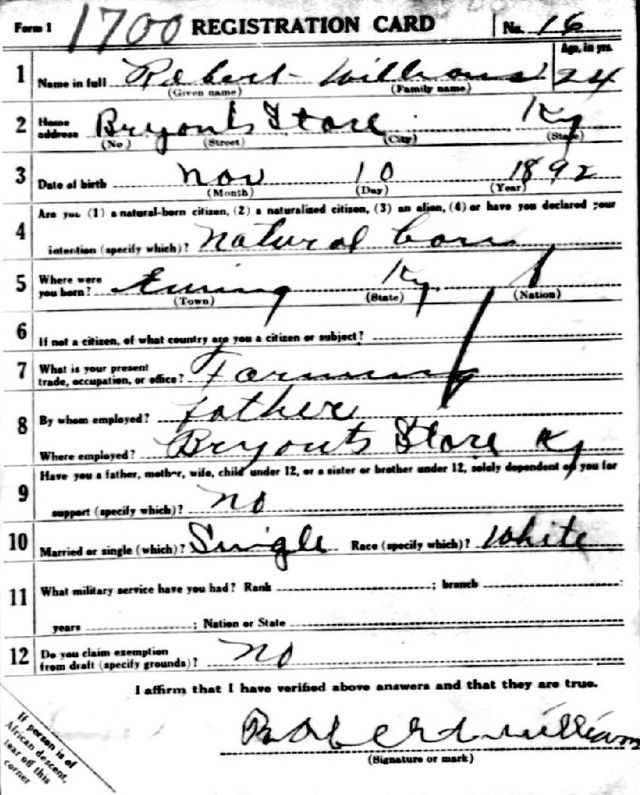 Form 1 1700 REGISTRATION CARD No. 16
Age, in yrs.
1 Name in full Robert Williams 24
(Given name) (Family name)
2 Home address Bryonts Store Ky
(No) (Street) (City) (State)
3 Date of birth Nov 10 1892
(Month) (Day) (Year)
4 Are you (1) a natural-born citizen, (2) a naturalized citizen, (3) an alien, (4) or have you declared your
intention (specify which)? Natural born
5 Where were you born? Ewing Ky
(Town) (State) (Nation)
6 If not a citizen, of what country are you a citizen or subject?
7 What is your present trade, occupation, or office? Farming
8 By whom employed? father
Where employed? Bryonts Store Ky
9 Have you a father, mother, wife, child under 12, or a sister or brother under 12, solely dependent on you for
support (specify which)? no
10 Married or single (which)? Single Race (specify which)? White
11 What military service have you had? Rank ; branch
years ; Nation or State
12 Do you claim exemption from draft (specify grounds)? no
I affirm that I have verified above answers and that they are true.
Robert william
(Signature or mark)
If person is of
African descent,
tear off this
corner